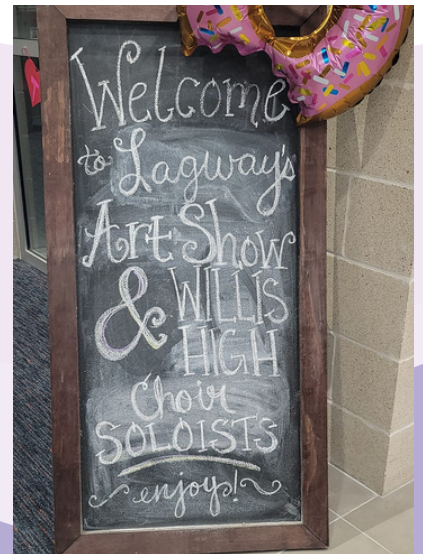 Welcome
to Lagway's
Art Show
& WILLIS
HIGH
Choir
SOLOISTS
enjoy!